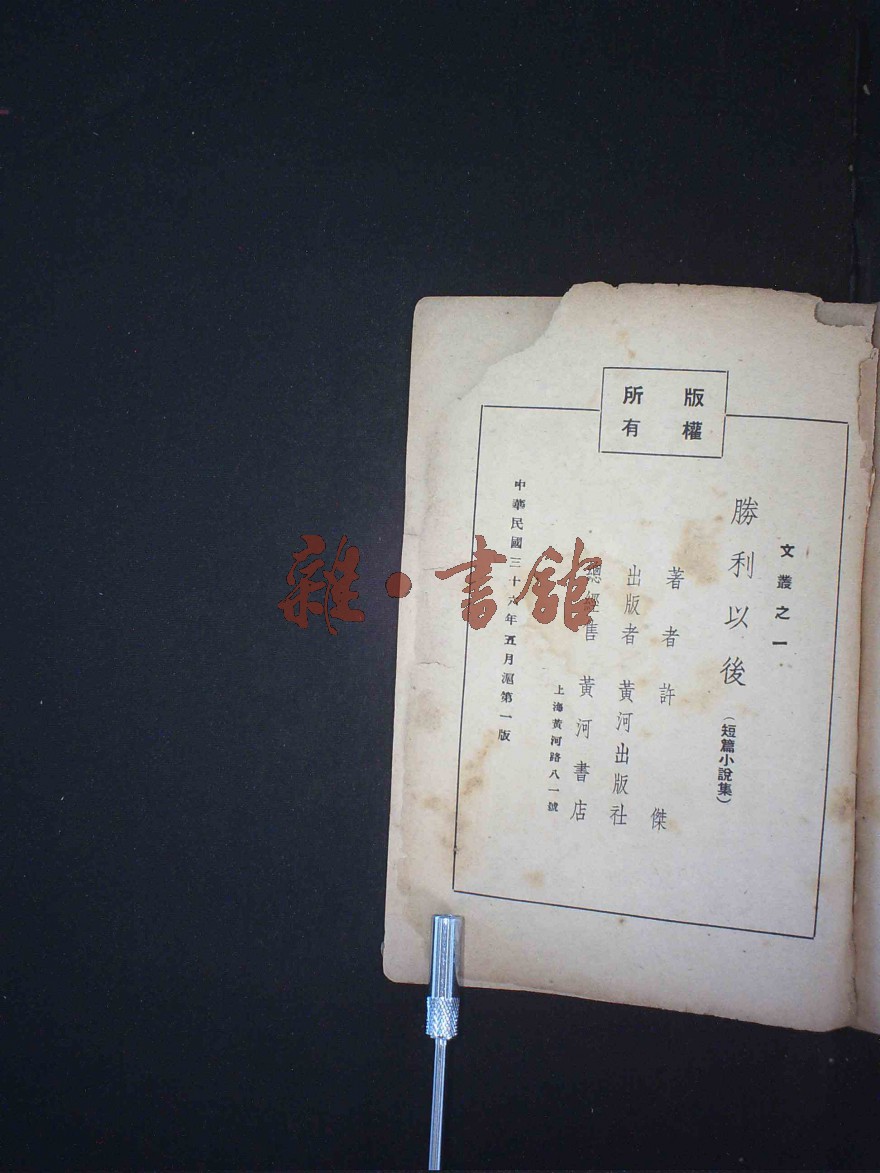 版權
所有
文叢之一
勝利以後（短篇小說集）
著者 許傑
出版者 黃河出版社
總經售 黃河書店
上海黃河路八一號
中華民國三十六年五月滬第一版
雜·書館